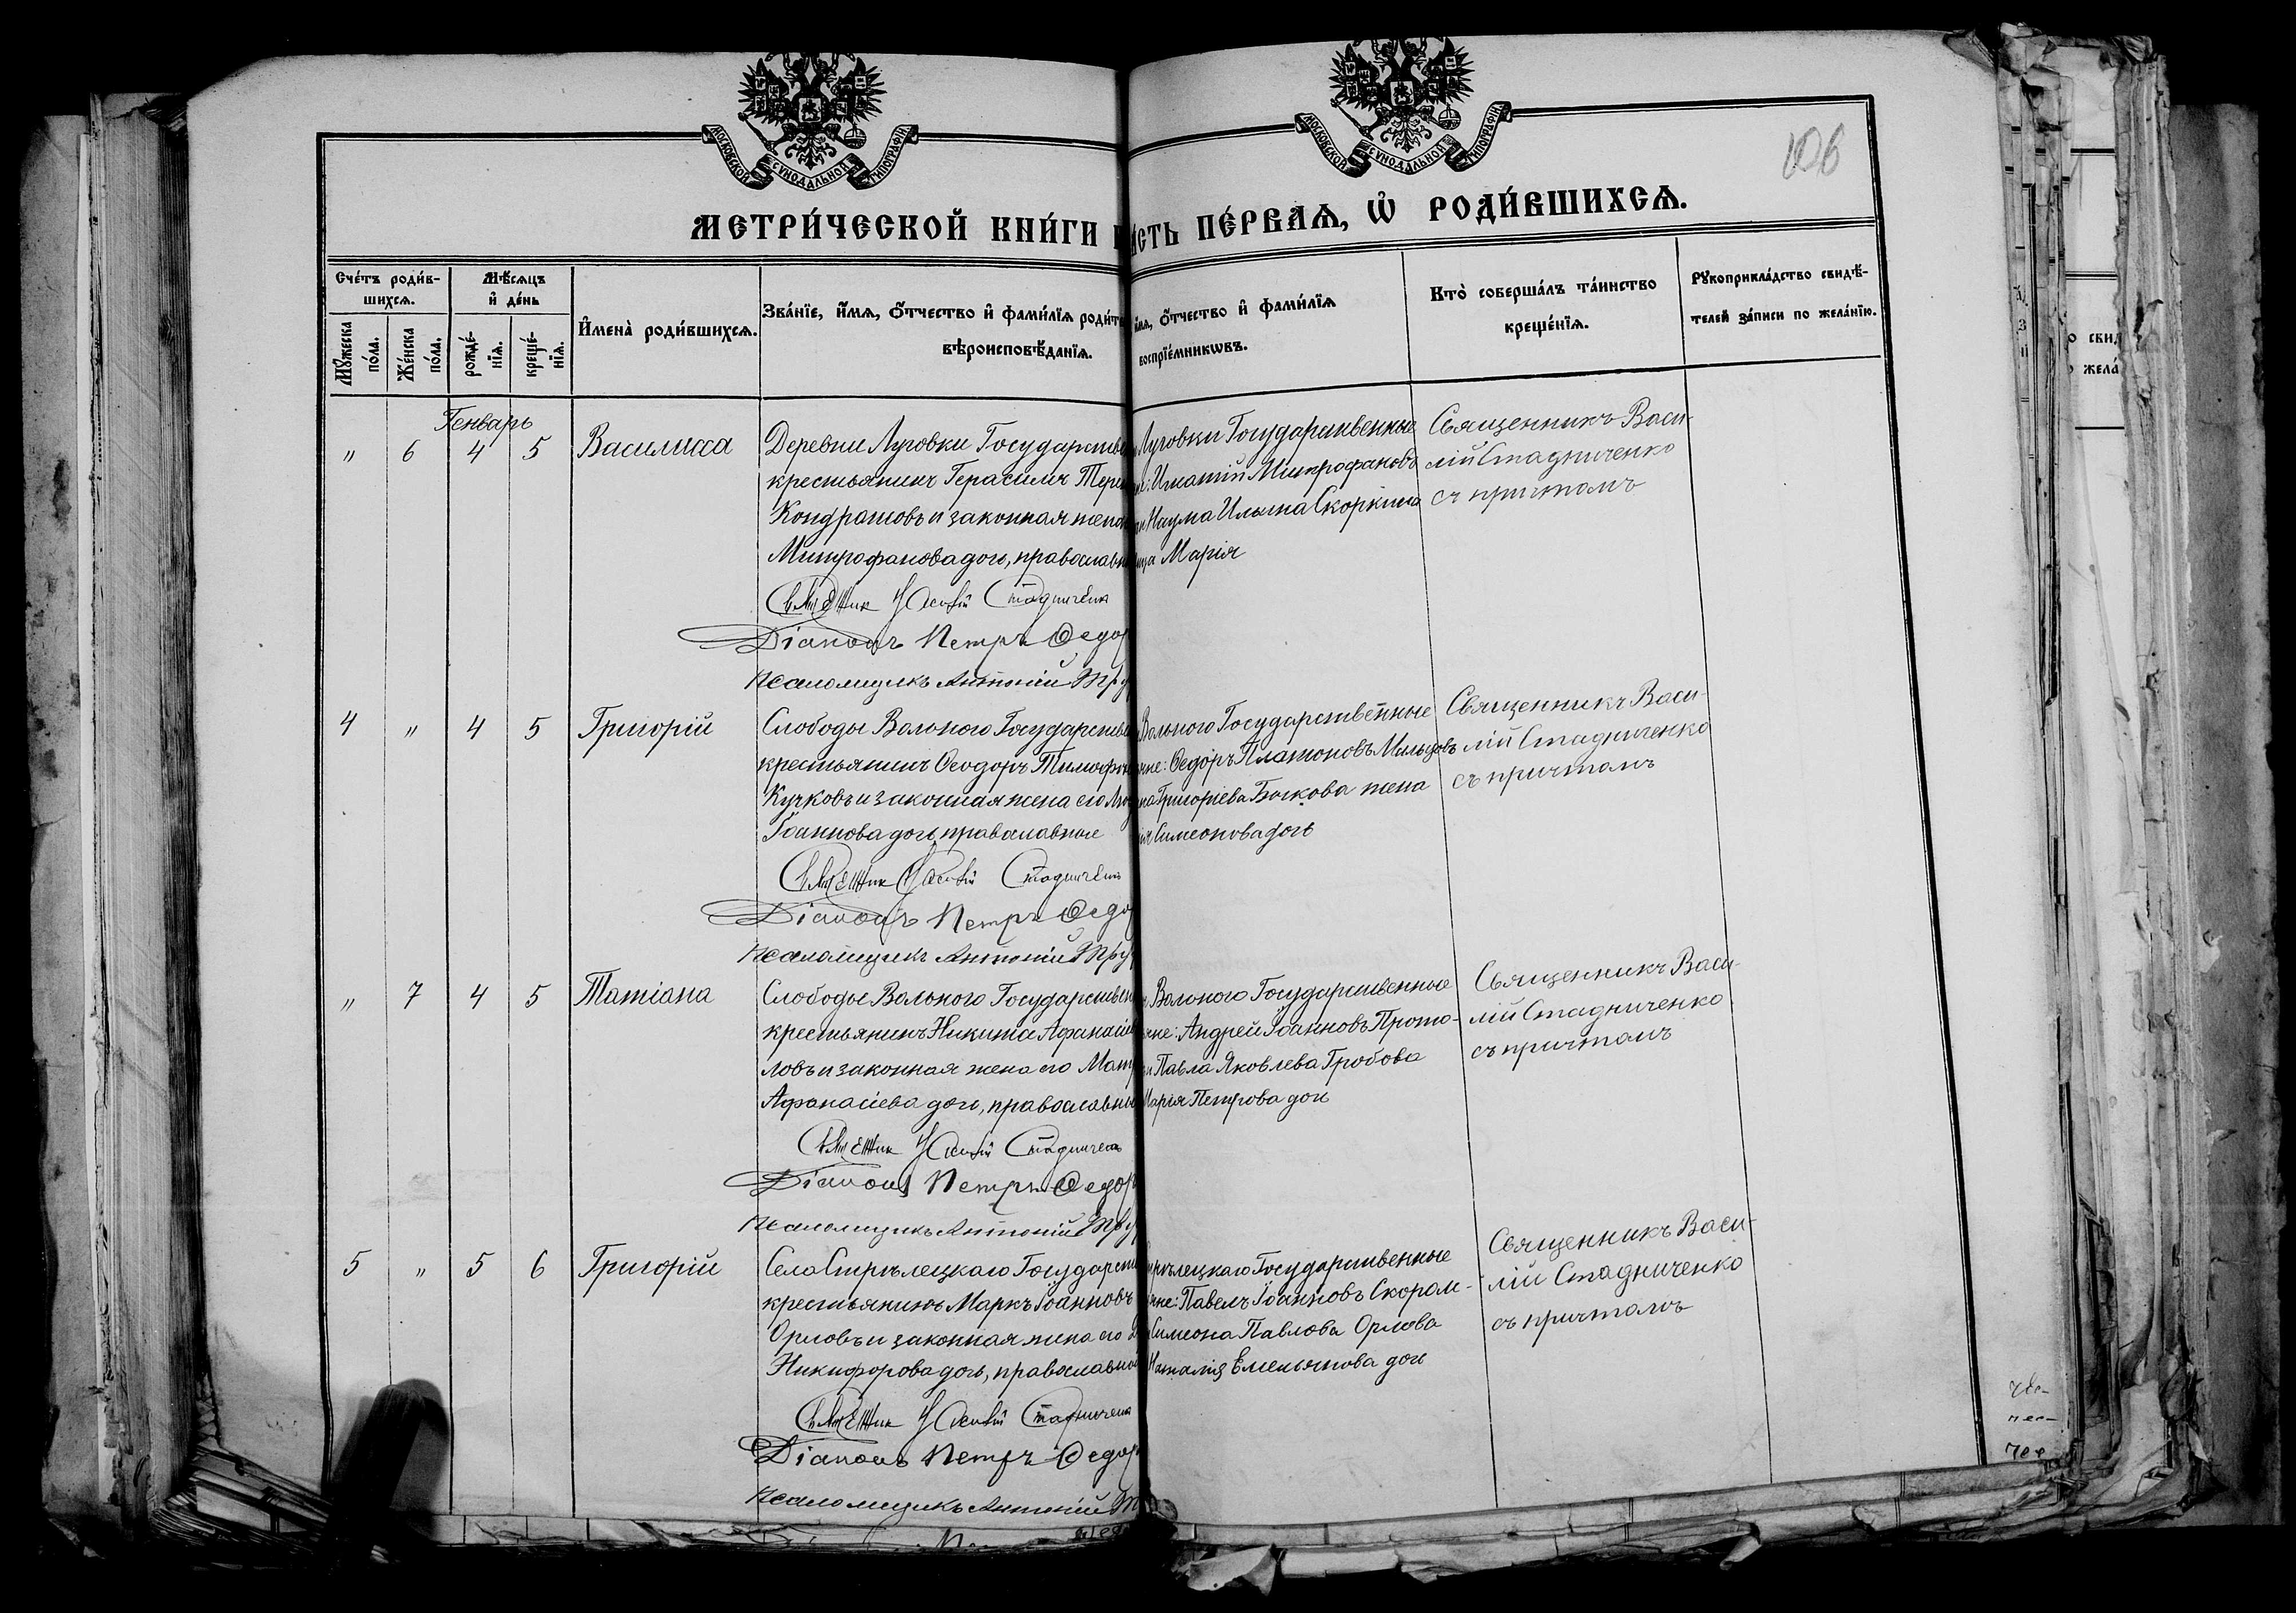 МОСКОВСКОЙ СѴНОДАЛЬНОЙ ТИПОГРАФІИ
МОСКОВСКОЙ СѴНОДАЛЬНОЙ ТИПОГРАФІИ
106
МЕТРИ́ЧЕСКОЙ КНИ́ГИ
СТЬ ПЕ́РВАѦ, Ѡ҆ РОДИ́ВШИХСѦ.
Сче́тъ роди́в-
шихсѧ.
Мꙋ́жеска по́ла.
Же́нска по́ла.
Мѣ́сѧцъ
и҆ де́нь
рожде́-
нїѧ.
креще́-
нїѧ.
И҆мена̀ роди́вшихсѧ.
Зва́нїе, и҆́мѧ, ѻ҆́тчество и҆ фами́лїѧ роди́те
вѣроисповѣ́данїѧ.
и҆́мѧ, ѻ҆́тчество и҆ фами́лїѧ
воспрїе́мникѡвъ.
Кто̀ соверша́лъ та́инство
креще́нїѧ.
Рꙋкоприкла́дство свидѣ́-
телей за́писи по жела́нїю.
Генварь
" 6 4 5 Василисса
Деревни Луговки Государстве
крестьянинъ Герасимъ Тере
Кондратовъ и законная жена
Митрофанова дочь, православн
Священник Василій Стадничен
Діаконъ Петръ Федор
Псаломщикъ Антоній Тру
Луговки Государственные
Игнатій Митрофановъ
Наума Ильина Скоркина
Марія
Священникъ Васи-
лій Стадниченко
съ причтомъ
4 " 4 5 Григорій
Слободы Вольного Государстве
крестьянинъ Ѳеодоръ Тимофѣ
Кучковъ и законная жена его
Іоаннова дочь, православные
Священник Василій Стадничен
Діаконъ Петръ Федор
Псаломщикъ Антоній Тру
Вольного Государственные
не: Ѳедоръ Платоновъ Мильцовъ
Григоріева Бочкова жена
Симеонова дочь
Священникъ Васи-
лій Стадниченко
съ причтомъ
" 7 4 5 Татіана
Слободы Вольного Государствен
крестьянинъ Никита Афанасіев
ловъ и законная жена его Мат
Афанасіева дочь, православные
Священник Василій Стадничен
Діаконъ Петръ Федор
Псаломщикъ Антоній Тру
Вольного Государственные
не: Андрей Іоанновъ Прото-
Павла Яковлева Гробова
Марія Петрова дочь
Священникъ Васи-
лій Стадниченко
съ причтомъ
5 " 5 6 Григорій
Села Стрѣлецкаго Государств
крестьянинъ Маркъ Іоанновъ
Орловъ и законная жена его
Никифорова дочь, православной
Священник Василій Стадничен
Діаконъ Петръ Федор
Псаломщикъ Антоній Т
рѣлецкаго Государственные
не: Павелъ Іоанновъ Скором-
Симеона Павлова Орлова
Наталія Емельянова дочь
Священникъ Васи-
лій Стадниченко
съ причтомъ